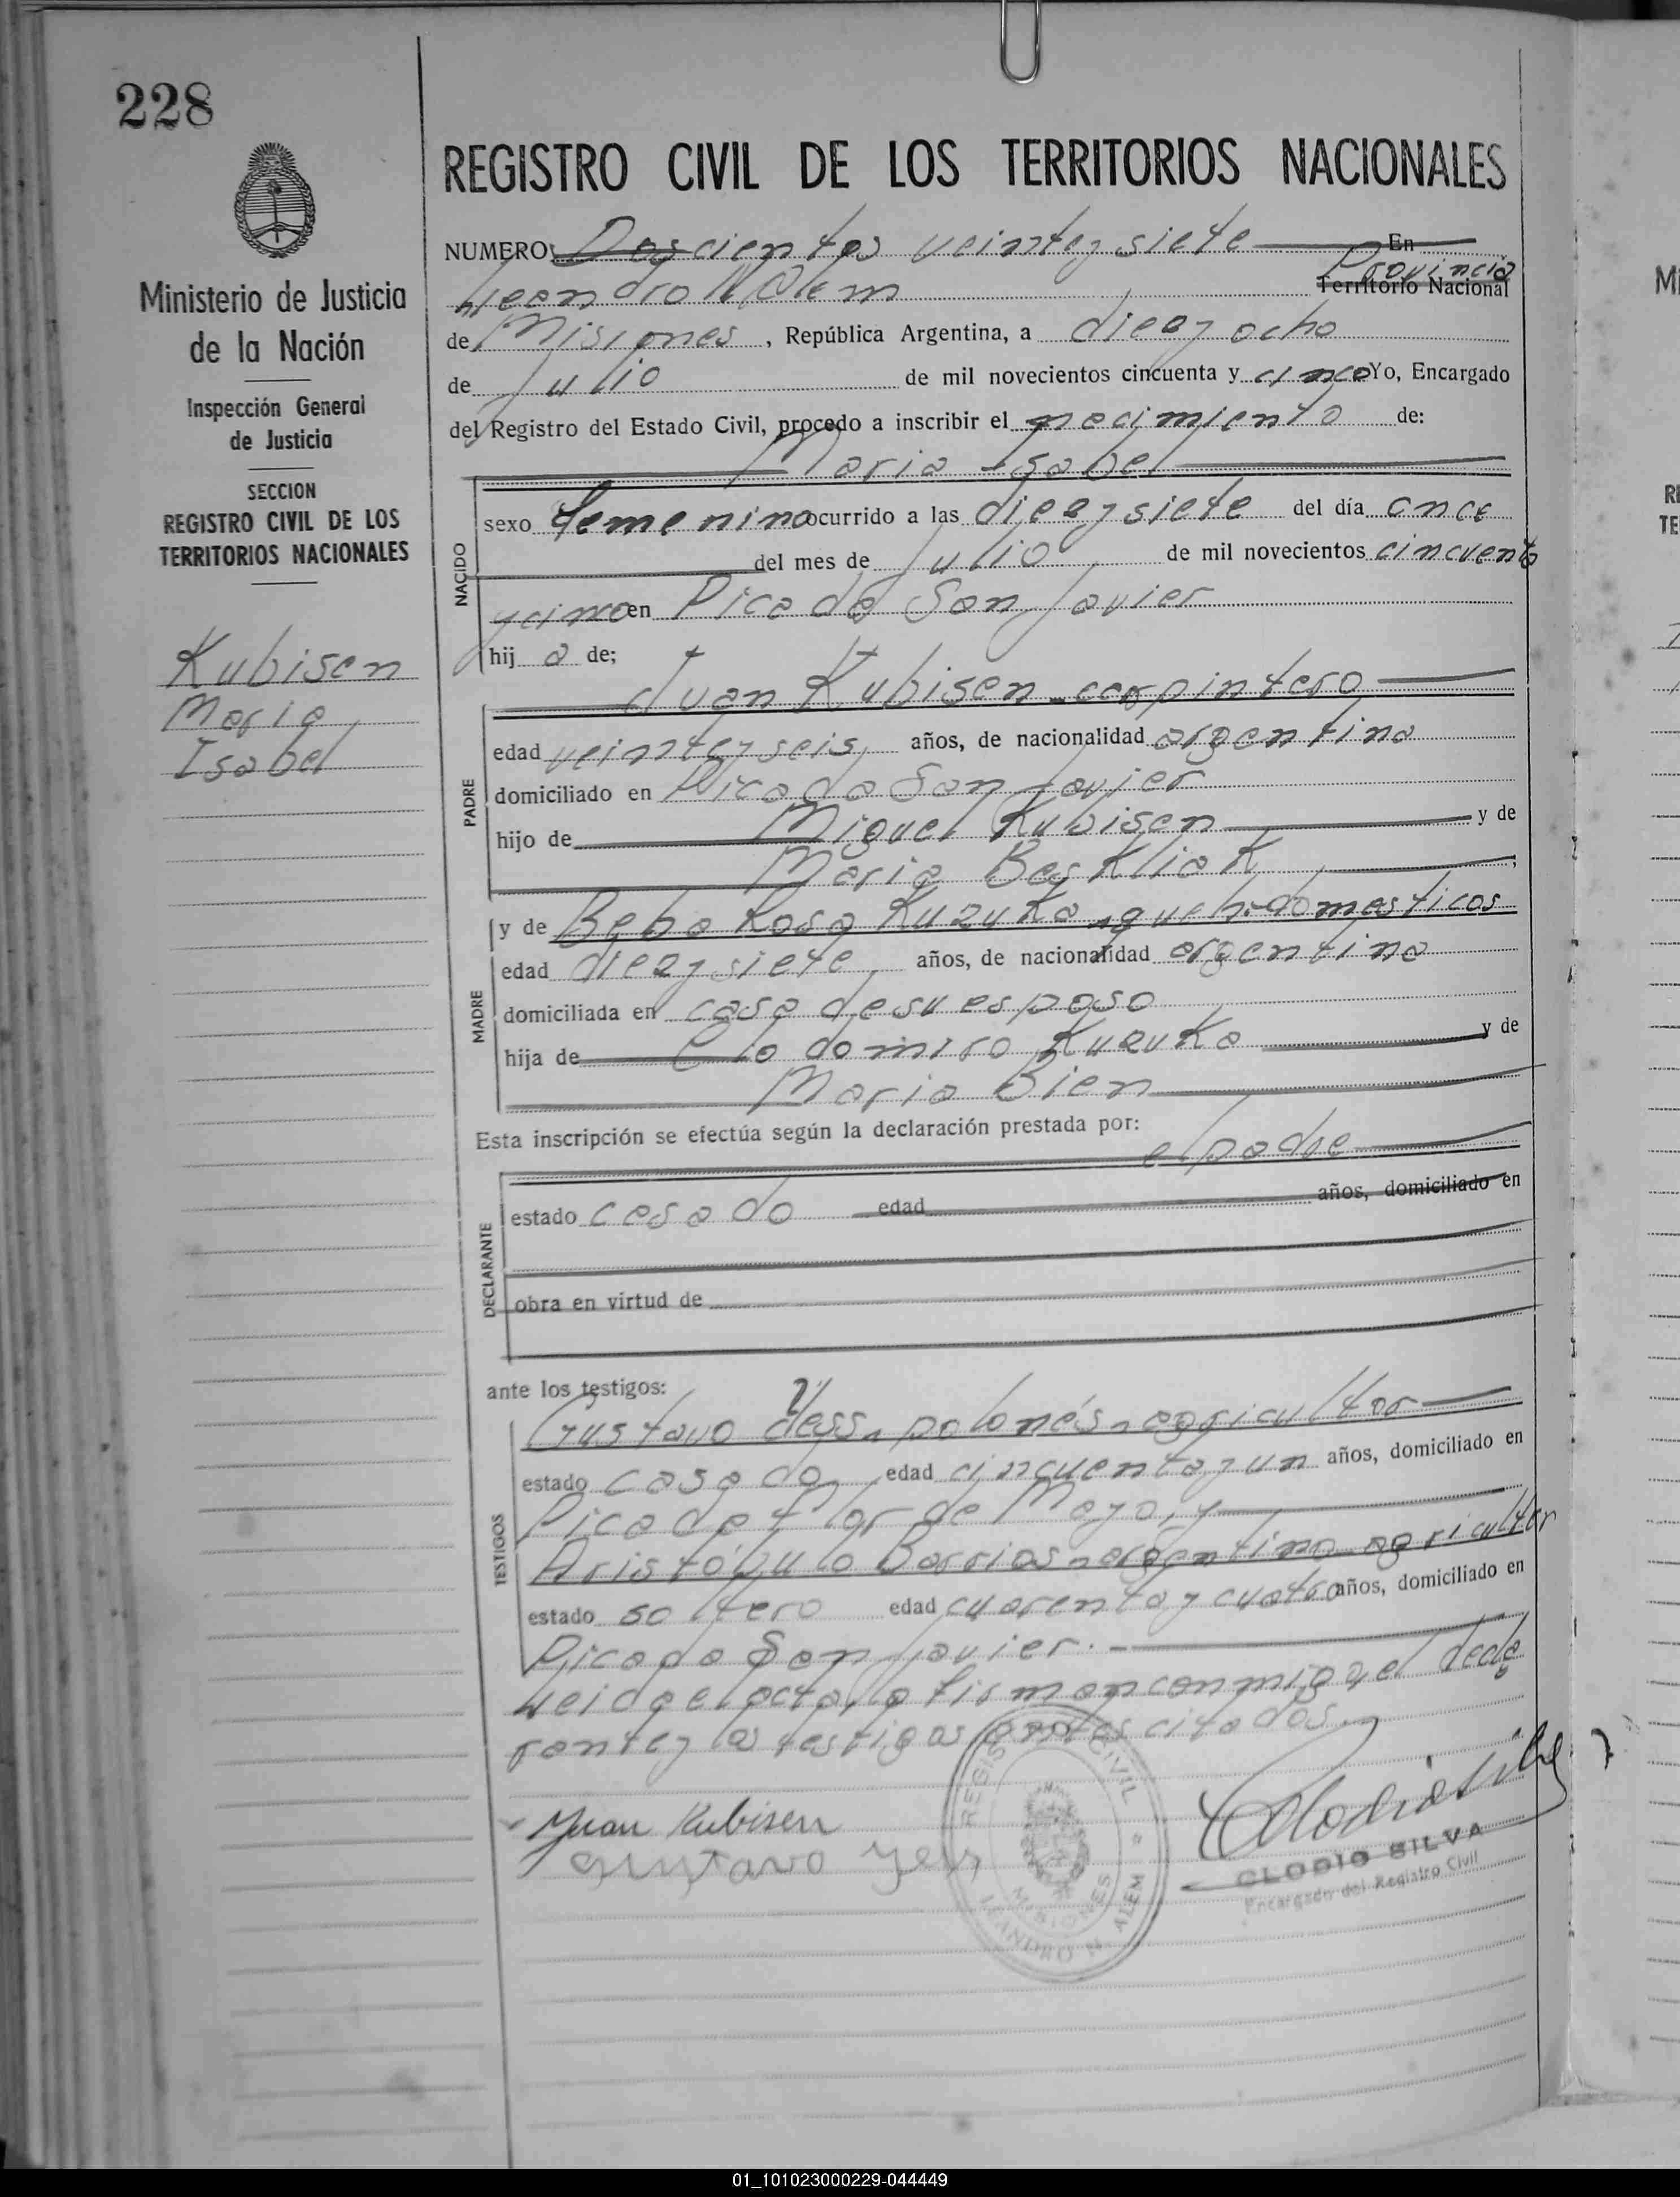 228
Ministerio de Justicia
de la Nación
Inspección General
de Justicia
SECCION
REGISTRO CIVIL DE LOS
TERRITORIOS NACIONALES
Kubisen
Maria
Isabel
REGISTRO CIVIL DE LOS TERRITORIOS NACIONALES
NUMERO Doscientos veintey siete En
Leandro N Alem Provincia Territorio Nacional
de Misiones, República Argentina, a diez y ocho
de Julio de mil novecientos cincuenta y cinco Yo, Encargado
del Registro del Estado Civil, procedo a inscribir el nacimiento de:
Maria Isabel
NACIDO
sexo femenino ocurrido a las diez y siete del día once
del mes de Julio de mil novecientos cincuenta
y cinco en Picada San Javier
hij a de;
Juan Kubisen - carpintero
PADRE
edad veintey seis, años, de nacionalidad argentino
domiciliado en Picada San Javier
hijo de Miguel Kubisen y de
Maria Beskliak,
MADRE
y de Beba Rosa Kuzuka, queh. domesticos
edad diez y siete, años, de nacionalidad argentina
domiciliada en casa de su esposo
hija de Clodomiro Kuzuka y de
Maria Bien
Esta inscripción se efectúa según la declaración prestada por:
el padre
DECLARANTE
estado casado edad años, domiciliado en
obra en virtud de
ante los testigos:
TESTIGOS
Gustavo Yess, polonés, agricultor
estado casado, edad cincuenta y un años, domiciliado en
Picada Flor de Mayo, y
Aristóbulo Barrios, argentino - agricultor
estado soltero edad cuarenta y cuatro años, domiciliado en
Picada San Javier. -
Leida el acta, la firman conmigo, el decla
rante y los testigos antes citados.
Juan Kubisen
Gustavo Yess
REGISTRO CIVIL
MISIONES
LEANDRO N. ALEM
CLODIO SILVA
Encargado del Registro Civil
01_101023000229-044449